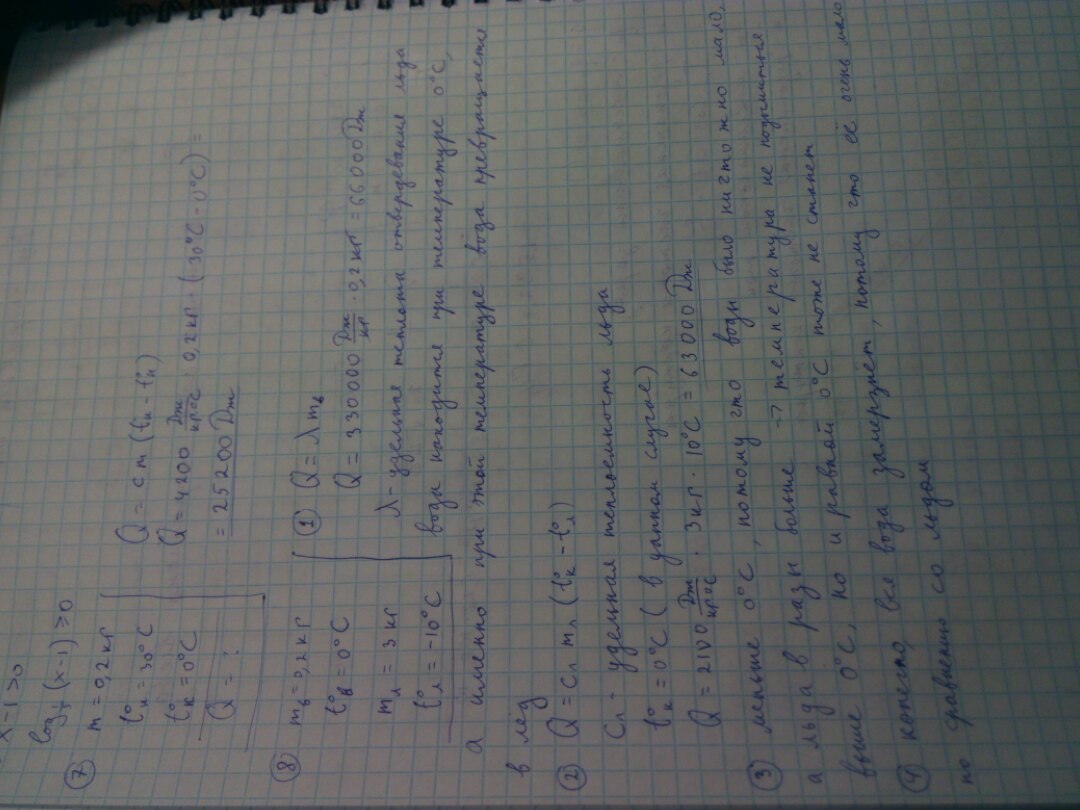 x-1>0
(x-1) > 0
⑦ m = 0,2 кг
t°н = 30°C
t°к = 0°C
Q = ?
Q = cm (t°к - t°н)
Q = 4200 Дж/кг°C · 0,2 кг · (30°C - 0°C) =
= 25200 Дж
⑧ mв = 0,2 кг
t°в = 0°C
mл = 3 кг
t°л = -10°C
① Q = λ mв
Q = 330000 Дж/кг · 0,2 кг = 66000 Дж
λ - удельная теплота отвердевания льда
вода находится при температуре 0°C,
а именно при этой температуре вода превращается
в лёд
② Q = Cл mл (t°к - t°л)
Cл - удельная теплоемкость льда
t°к = 0°C (в данном случае)
Q = 2100 Дж/кг°C · 3 кг · 10°C = 63000 Дж
③ меньше 0°C, потому что воды было ничтожно мало,
а льда в разы больше → температура не подымиться
выше 0°C, но и равной 0°C тоже не станет
④ конечно, вся вода замерзнет, потому что её очень мало
по сравнению со льдом